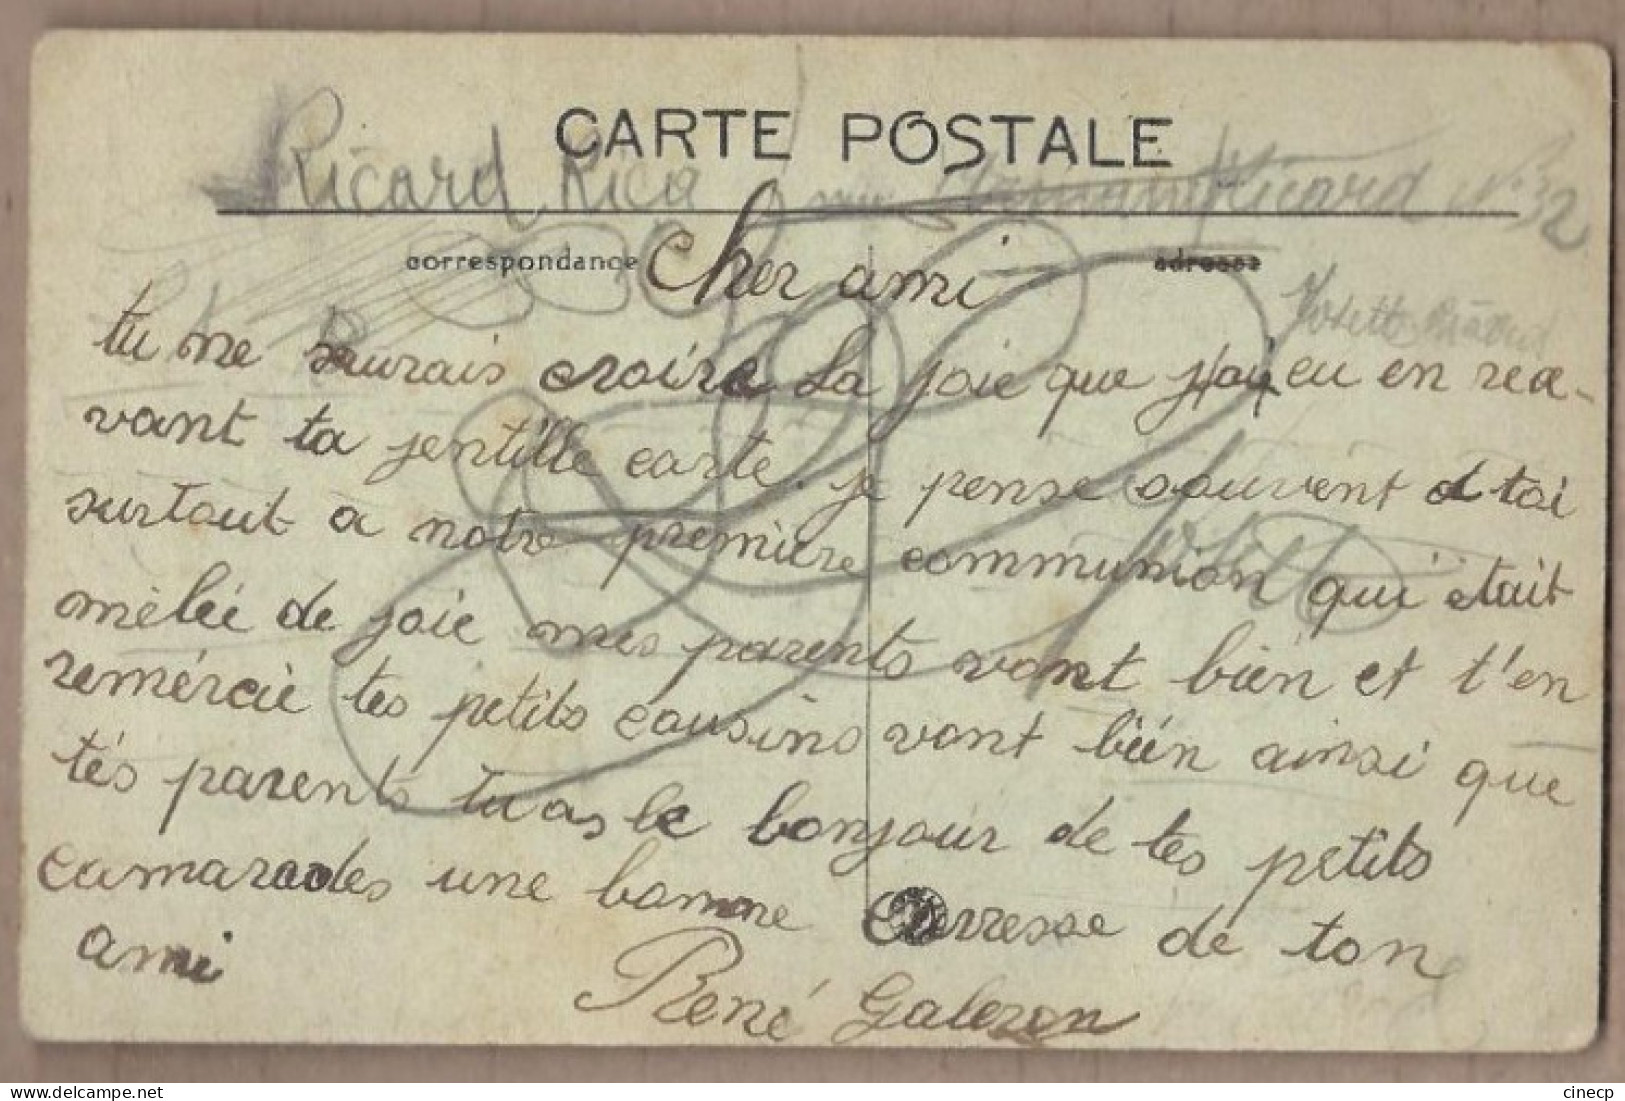 CARTE POSTALE
Ricard Rica Ricard N° 32
correspondance adresse
Cher ami
tu ne saurais croire la joie que j'ai eu en rece-
vant ta jentille carte. je pense souvent a toi
surtout a notre première communion qui était
mèleé de joie mes parents vont bien et t'en
remércie tes petits cousins vont bien ainsi que
tés parents tu as le bonjour de tes petits
camarades une bonne carresse de ton
ami
René Galezon
cinecp